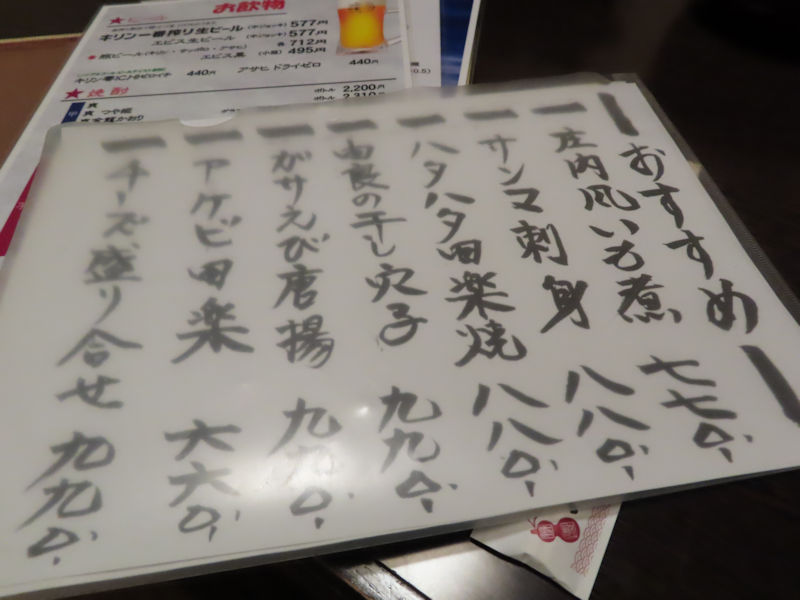 お飲物
★ビール
キリン一番搾り生ビール (中ジョッキ) 577円
エビス生ビール (中ジョッキ) 577円
各 712円
エビス黒 (小瓶) 495円
440円 アサヒ ドライゼロ 440円
★焼酎
ボトル 2,200円
ボトル 2,310円
おすすめ
庄内風いも煮 七七〇、
サンマ刺身 八八〇、
ハタハタ田楽焼 八八〇、
由良の干し穴子 九九〇、
がサえび唐揚 九九〇、
アケビ田楽 六六〇、
チーズ盛り合せ 九九〇、